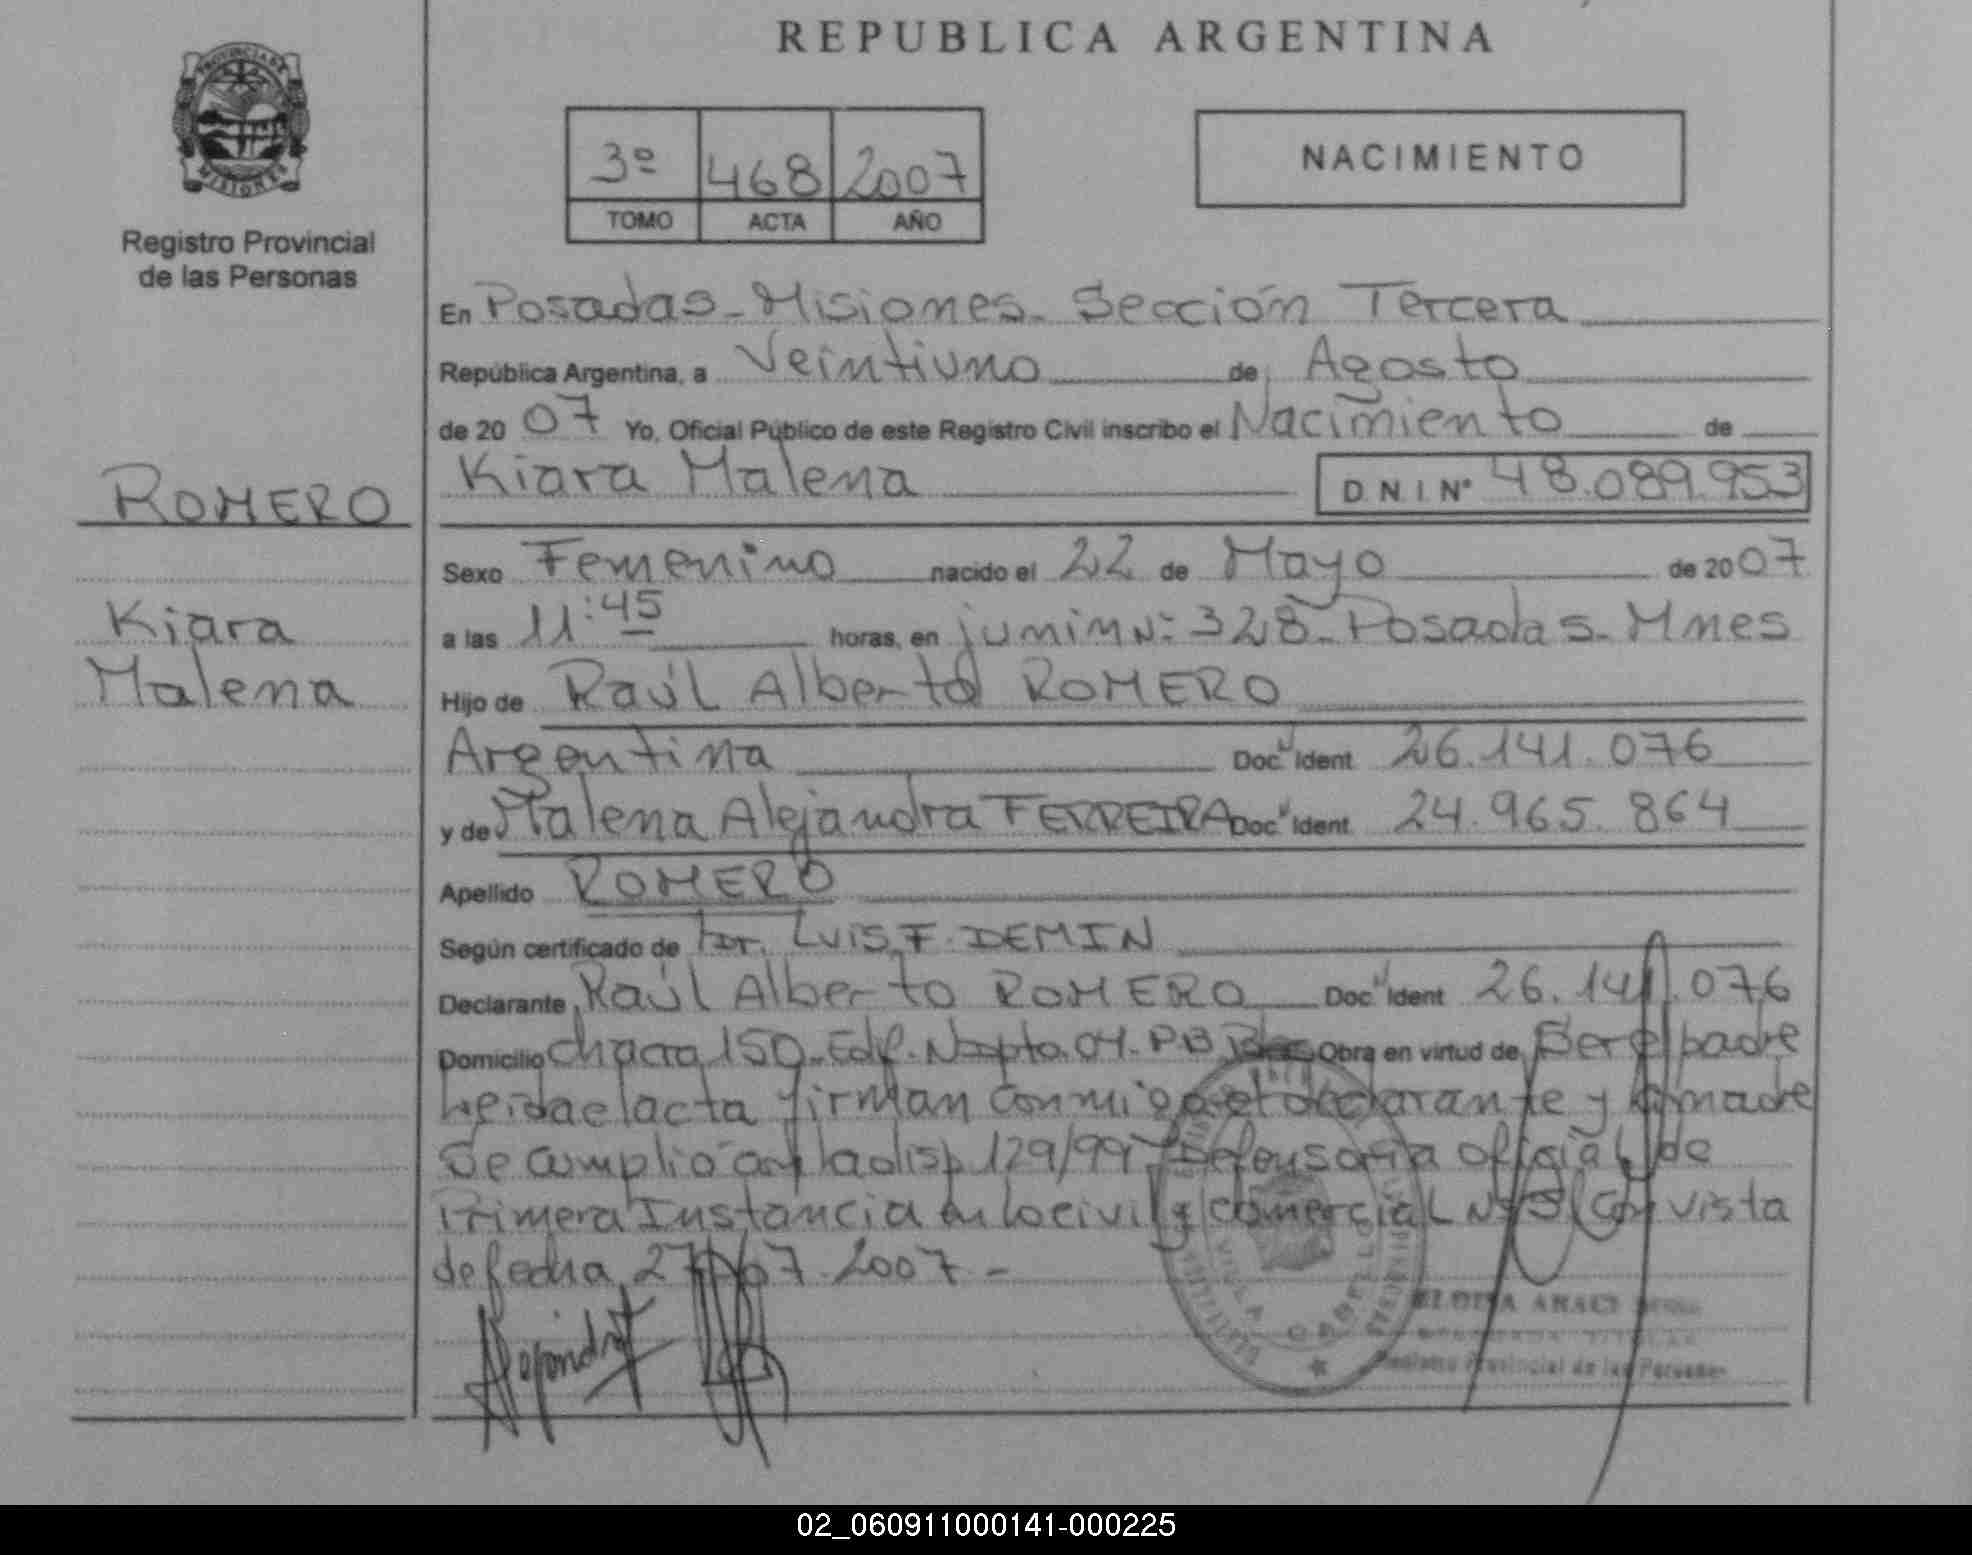 REPUBLICA ARGENTINA
PROVINCIA DE
MISIONES
Registro Provincial
de las Personas
3º 468 2007
TOMO ACTA AÑO
NACIMIENTO
En Posadas - Misiones - Sección Tercera
República Argentina, a Veintiuno de Agosto
de 20 07 Yo, Oficial Público de este Registro Civil inscribo el Nacimiento de
Kiara Malena D N I Nº 48.089.953
ROMERO
Kiara
Malena
Sexo Femenino nacido el 22 de Mayo de 20 07
a las 11:45 horas, en junin Nº 328 - Posadas - Mnes
Hijo de Raúl Alberto ROMERO
Argentina Doc. Ident 26.141.076
y de Malena Alejandra FERREIRA Doc. Ident 24.965.864
Apellido ROMERO
Según certificado de Dr. Luis F. DEMIN
Declarante Raúl Alberto ROMERO Doc. Ident 26.141.076
Domicilio Chacra 150 - Edf. Dpto. 04 - P.B Obra en virtud de Ser el padre
Leida el acta firman conmigo el declarante y la madre
Se cumplió con la disp 129/99 Defensoria oficial de
Primera Instancia en lo civil y comercial Nº 5 Con vista
de fecha 27 07 2007 -
Alejandra F
VILLA CABELLO
Registro Provincial de las Personas
02_060911000141-000225